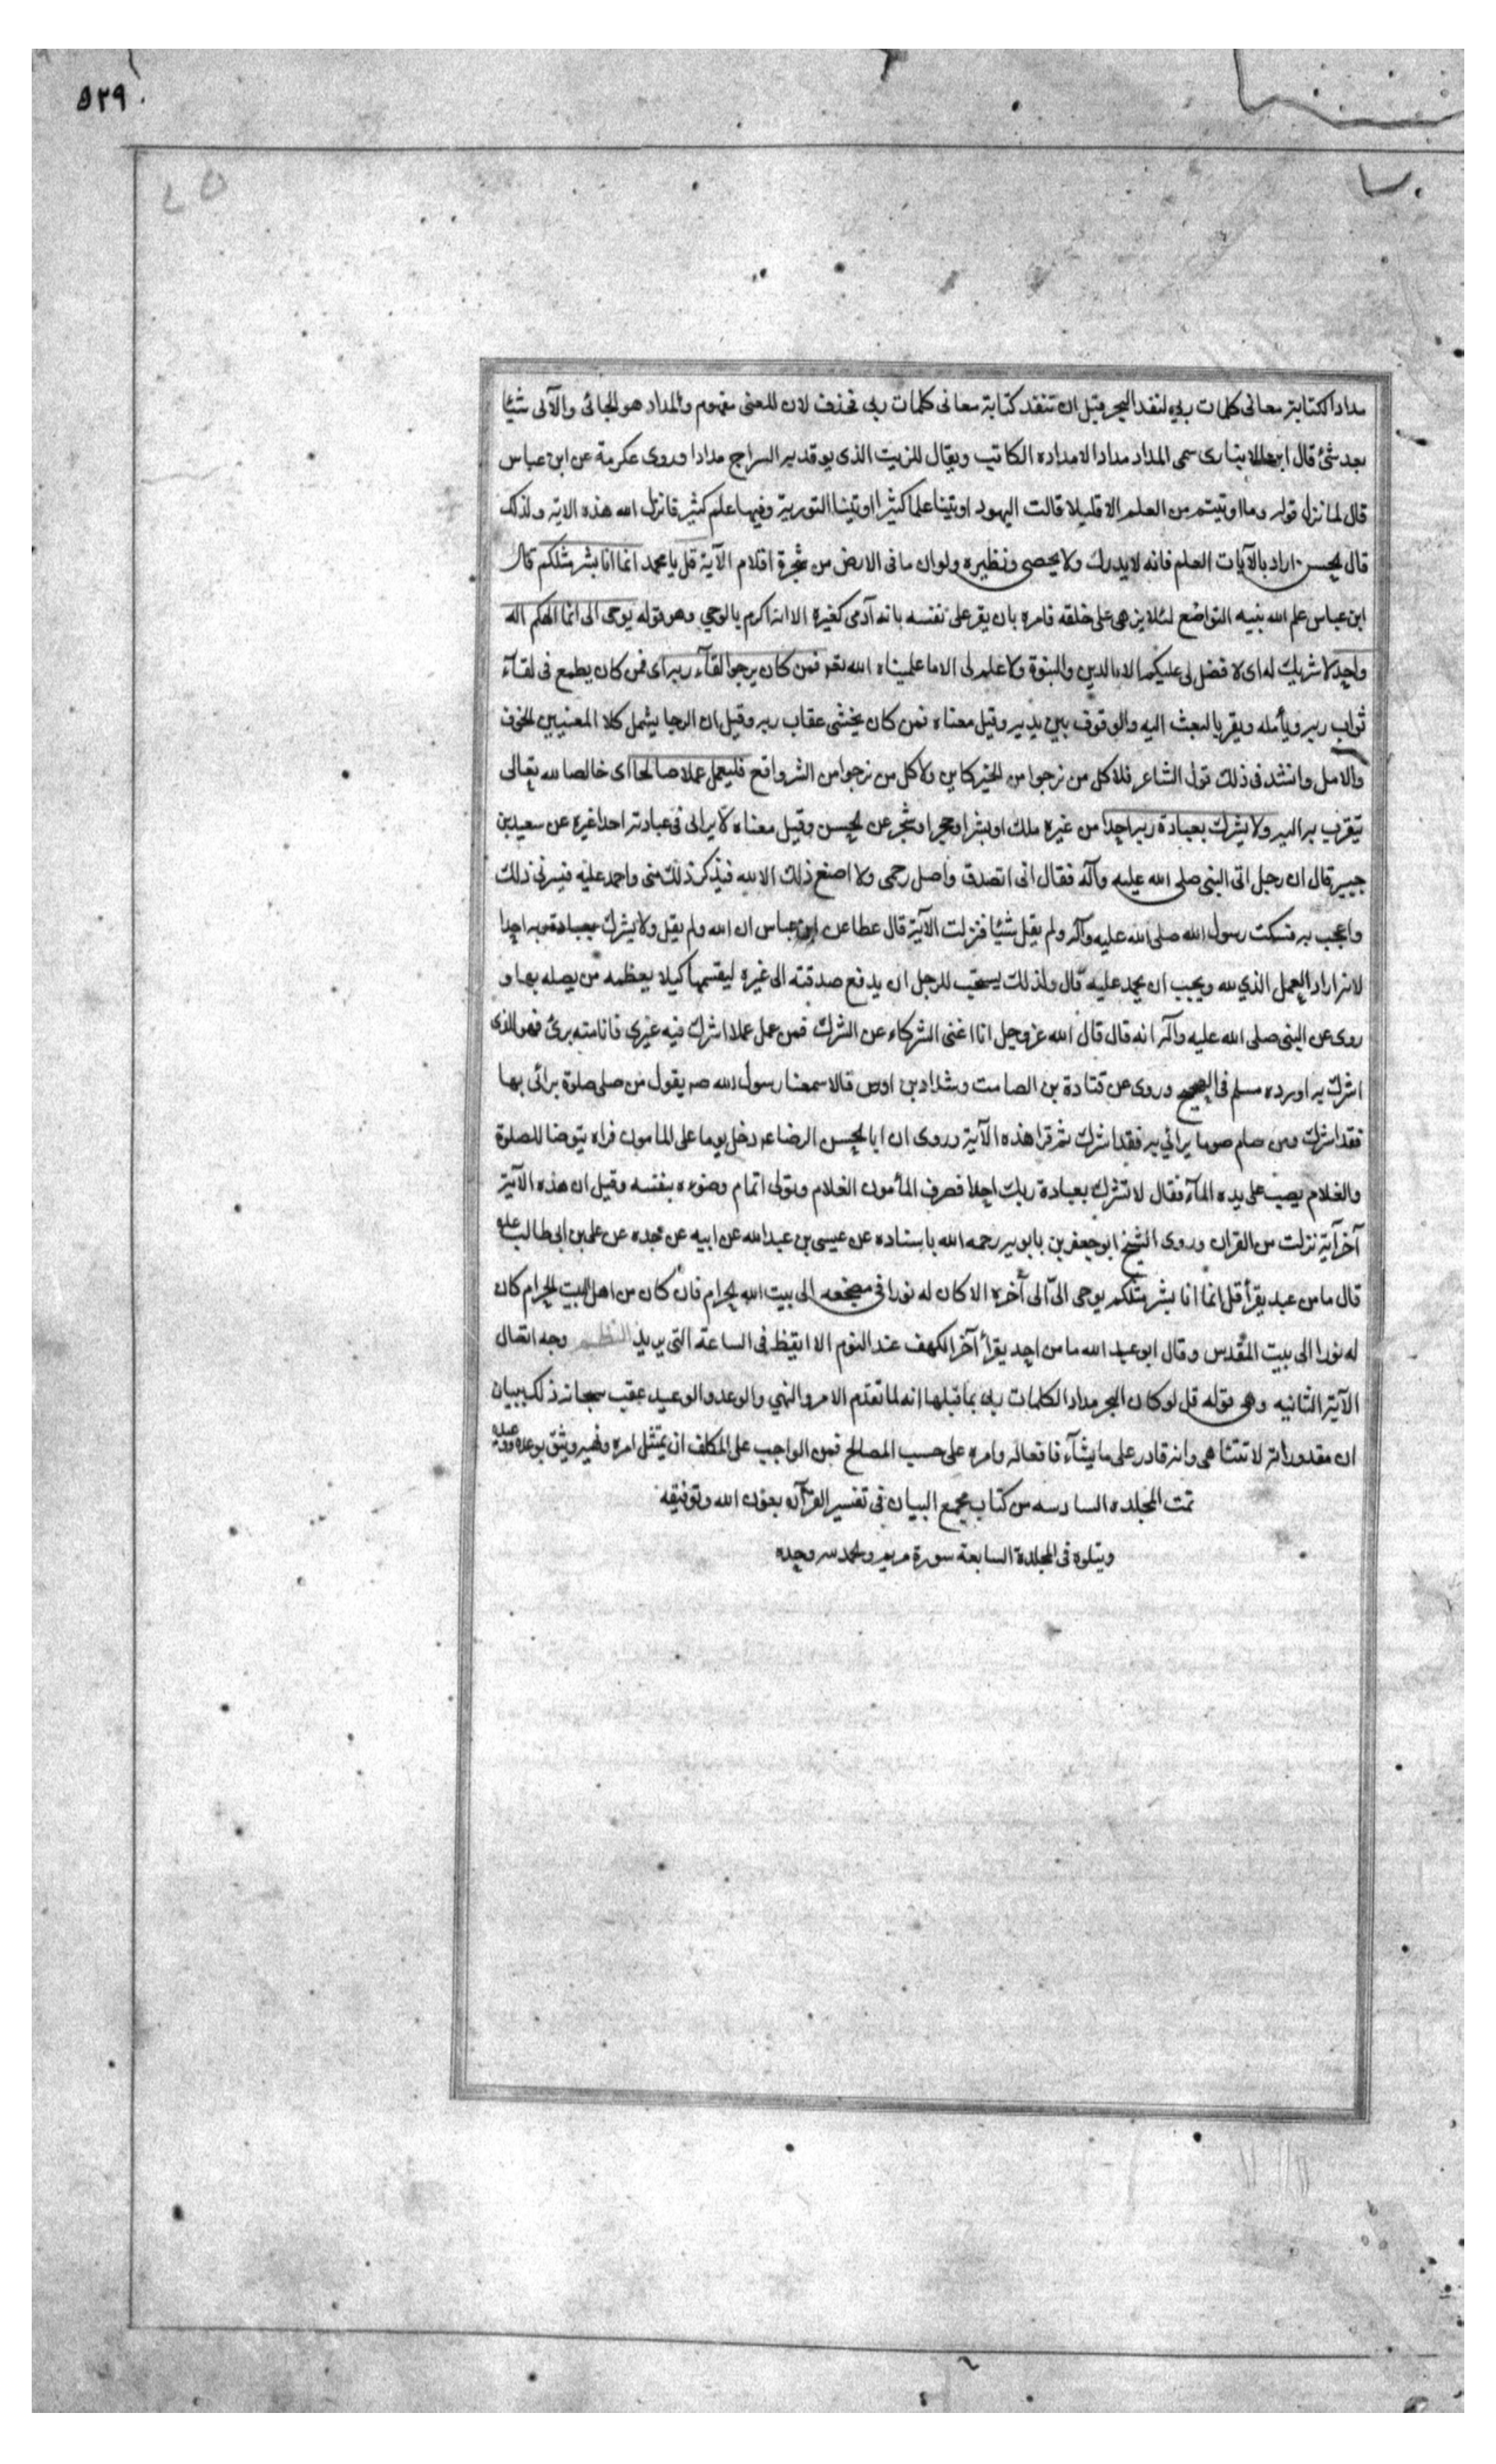 ٥٢٩
مدادا لكتابة معانى كلمات ربى لنفد البحر قبل ان تنفد كتابة معانى كلمات ربى فحذف لان المعنى مفهوم والمداد هو الجائى والآتى شيئا
بعد شئ قال ابن الانبارى سمى المداد مدادا لامداده الكاتب ويقال للزيت الذى يوقد به السراج مدادا وروى عكرمة عن ابن عباس
قال لما نزل قوله وما اوتيتم من العلم الا قليلا قالت اليهود اوتينا علما كثيرا اوتينا التورية وفيها علم كثير فانزل الله هذه الاية ولذلك
قال الحسن اراد بالآيات العلم فانه لا يدرك ولا يحصى ونظيره ولو ان ما فى الارض من شجرة اقلام الآية قل يا محمد انما انا بشر مثلكم قال
ابن عباس علم الله نبيه التواضع لئلا يزهى على خلقه فامره بان يقر على نفسه بانه آدمى كغيره الا انه اكرم بالوحي وهو قوله يوحى الى انما الهكم اله
واحد لا شريك له اى لا فضل لى عليكم الا بالدين والنبوة ولا علم لى الا ما علمنياه الله تعو فمن كان يرجوا لقآء ربه اى فمن كان يطمع فى لقآء
ثواب ربه ويأمله ويقر بالبعث اليه والوقوف بين يديه وقيل معناه فمن كان يخشى عقاب ربه وقيل ان الرجا يشمل كلا المعنيين الخوف
والامل وانشد فى ذلك قول الشاعر فلا كل من نرجوا من الخير كاين ولا كل من نرجوا من الشر واقع فليعمل عملا صالحا اى خالصا لله تعالى
يتقرب به اليه ولا يشرك بعبادة ربه احدا من غيره ملك او بشر او حجر او شجر عن الحسن وقيل معناه لا يرائى فى عبادته احدا غيره عن سعيد بن
جبير قال ان رجل اتى النبى صلى الله عليه وآله فقال انى اتصدق واصل رحمى ولا اصنع ذلك الا لله فيذكر ذلك منى واحمد عليه فيسرنى ذلك
واعجب به فسكت رسول الله صلى الله عليه وآله ولم يقل شيئا فنزلت الآية قال عطا عن ابن عباس ان الله ولم يقل ولا يشرك بعبادة ربه احدا
لانه اراد العمل الذي لله ويحب ان يحمد عليه قال ولذلك يستحب للرجل ان يدفع صدقته الى غيره ليقسمها كيلا يعظمه من يصله بها و
روى عن النبى صلى الله عليه وآله انه قال قال الله عز وجل انا اغنى الشركاء عن الشرك فمن عمل عملا اشرك فيه غيرى فانا منه برئ فهو للذى
اشرك به اورده مسلم فى الصحيح وروى عن قتادة بن الصامت وشداد بن اوس قالا سمعنا رسول الله صه يقول من صلى صلوة يرائى بها
فقد اشرك ومن صام صوما يرائي به فقد اشرك ثم قرا هذه الآية وروى ان ابا الحسن الرضا عه دخل يوما على المامون فراه يتوضا للصلوة
والغلام يصب على يده المآء فقال لا تشرك بعبادة ربك احدا فصرف المأمون الغلام وتولى اتمام وضوءه بنفسه وقيل ان هذه الآية
آخر آية نزلت من القران وروى الشيخ ابو جعفر بن بابويه رحمه الله باسناده عن عيسى بن عبد الله عن ابيه عن جده عن على بن ابى طالب عليه
قال ما من عبد يقرأ قل انما انا بشر مثلكم يوحى الىّ الى آخره الا كان له نورا فى مضجعه الى بيت الله الحرام فان كان من اهل البيت الحرام كان
له نورا الى بيت المقدس وقال ابو عبد الله ما من احد يقرأ آخر الكهف عند النوم الا ايقظ فى الساعة التى يريد النظم وجه اتصال
الآية الثانيه وهى قوله قل لو كان البحر مدادا لكلمات ربى بما قبلها انه لما تقدم الامر والنهي والوعد والوعيد عقب سبحانه ذلك ببيان
ان مقدوراته لا تتناهى وانه قادر على ما يشآء فافعاله وامره على حسب المصالح فمن الواجب على المكلف ان يمتثل امره ونهيه ويثق بوعده
تمت المجلده السادسه من كتاب مجمع البيان فى تفسير القرآن بعون الله وتوفيقه
ويتلوه فى المجلدة السابعة سورة مريم والحمد لله وحده